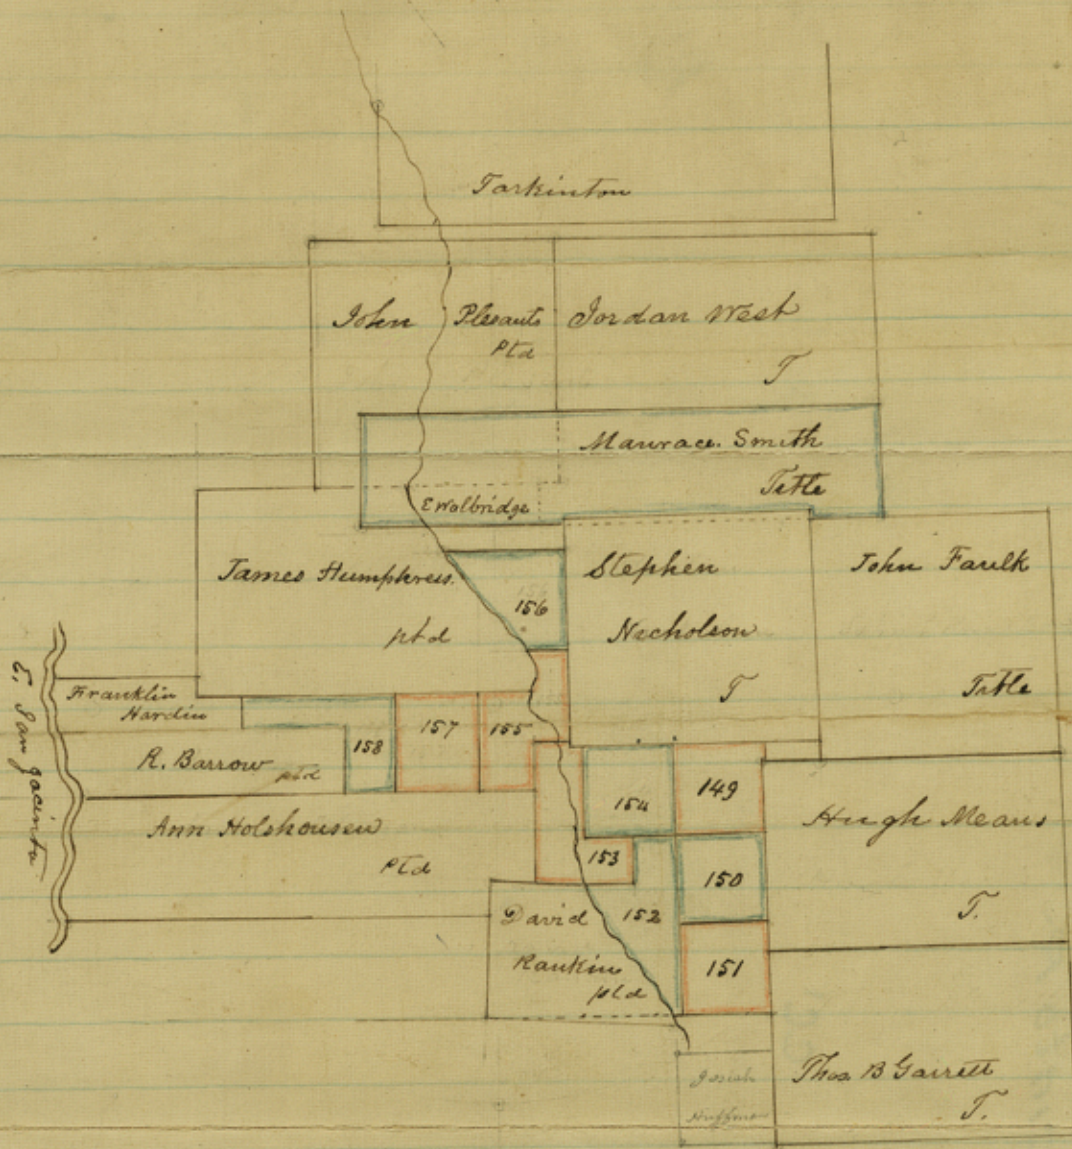 Tarkinton
John Plesants
Ptd
Jordan West
T
Maurace Smith
Title
E Walbridge
James Humphress
ptd
156
Stephen
Nicholson
T
John Faulk
Title
Franklin
Hardin
R. Barrow ptd
158
157
155
E. San Jacinto
Ann Holshousen
Ptd
154
149
153
150
152
151
David
Rankin
ptd
Hugh Means
T.
Josiah
Huffman
Thos B Garrett
T.